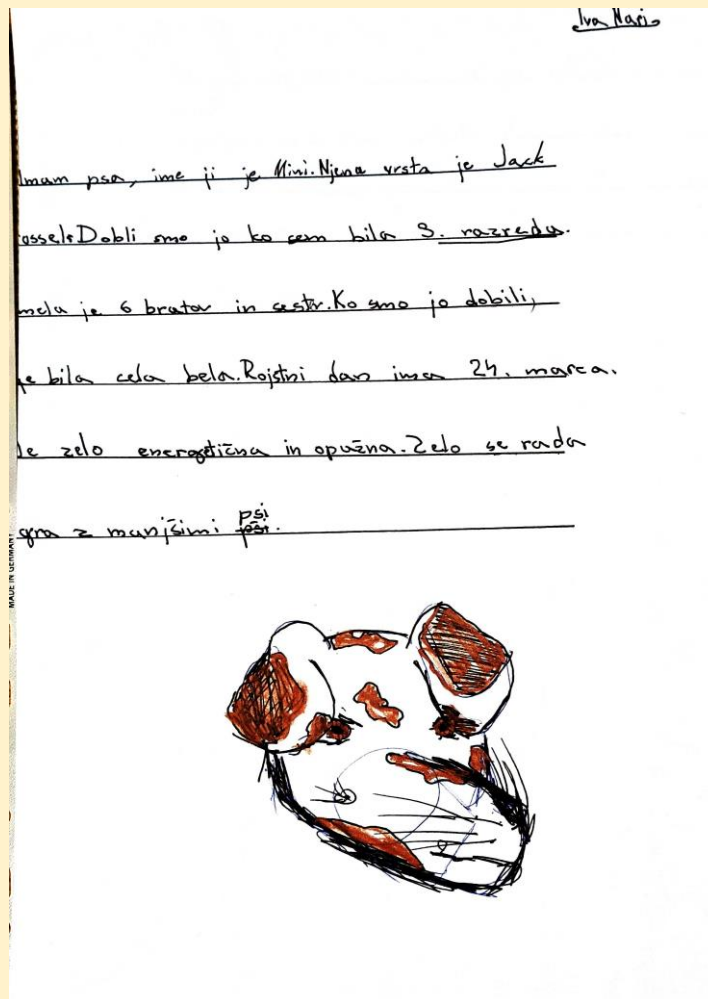 Iva Marij
Imam psa, ime ji je Mini. Njena vrsta je Jack
ossel. Dobli smo jo ko sem bila 3. razredu.
mela je 6 bratov in sestr. Ko smo jo dobili,
je bila cela bela. Rojstni dan ima 24. marca.
Je zelo energetična in opažna. Zelo se rada
gra z manjšimi psi.
MADE IN GERMANY